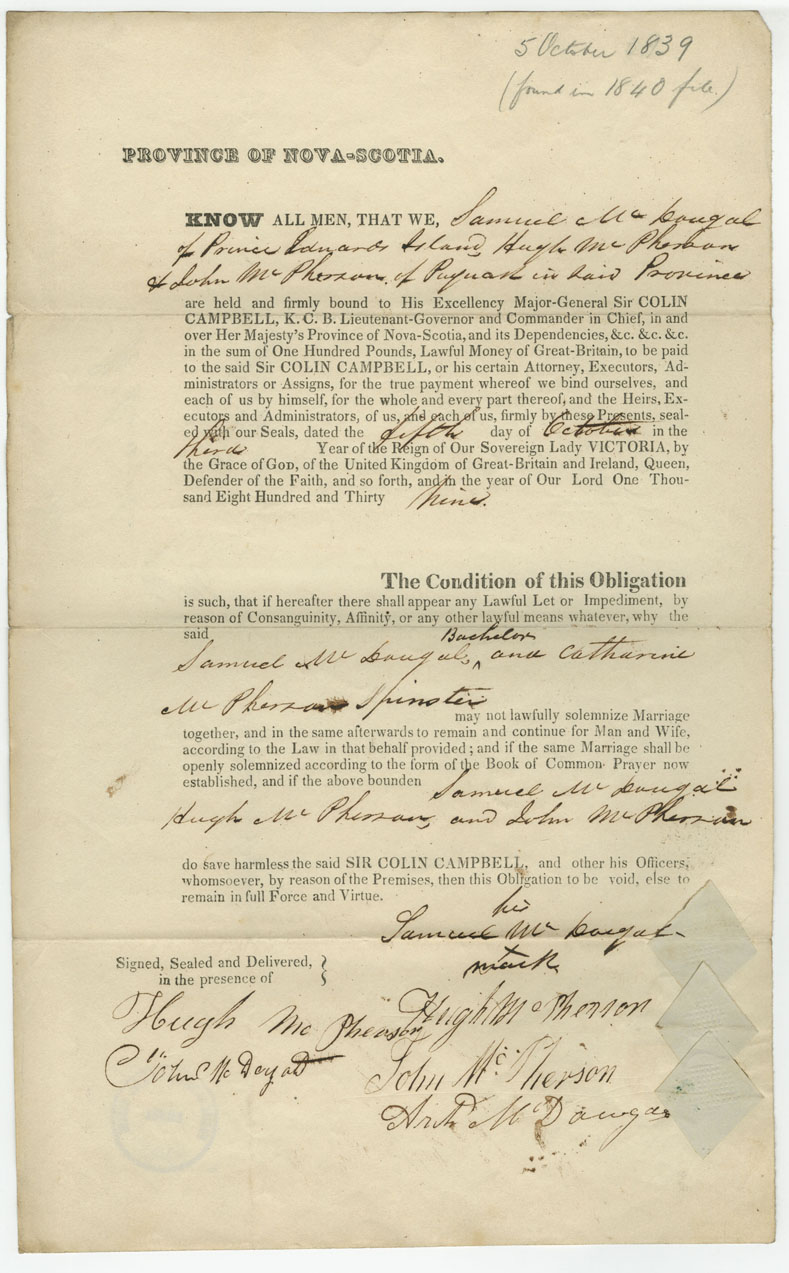 5 October 1839
(found in 1840 file.)
PROVINCE OF NOVA-SCOTIA.
KNOW ALL MEN, THAT WE, Samuel Mc Dougal
of Prince Edwards Island, Hugh Mc Pherson
& John Mc Pherson, of Pugwash in said Province
are held and firmly bound to His Excellency Major-General Sir COLIN
CAMPBELL, K. C. B. Lieutenant-Governor and Commander in Chief, in and
over Her Majesty's Province of Nova-Scotia, and its Dependencies, &c. &c. &c.
in the sum of One Hundred Pounds, Lawful Money of Great-Britain, to be paid
to the said Sir COLIN CAMPBELL, or his certain Attorney, Executors, Ad-
ministrators or Assigns, for the true payment whereof we bind ourselves, and
each of us by himself, for the whole and every part thereof, and the Heirs, Ex-
ecutors and Administrators, of us, and each of us, firmly by these Presents, seal-
ed with our Seals, dated the fifth day of October in the
third Year of the Reign of Our Sovereign Lady VICTORIA, by
the Grace of GOD, of the United Kingdom of Great-Britain and Ireland, Queen,
Defender of the Faith, and so forth, and in the year of Our Lord One Thou-
sand Eight Hundred and Thirty nine.
The Condition of this Obligation
is such, that if hereafter there shall appear any Lawful Let or Impediment, by
reason of Consanguinity, Affinity, or any other lawful means whatever, why the
said Bachelor
Samuel Mc Dougal, ^ and Catharine
Mc Pherson Spinster
may not lawfully solemnize Marriage
together, and in the same afterwards to remain and continue for Man and Wife,
according to the Law in that behalf provided; and if the same Marriage shall be
openly solemnized according to the form of the Book of Common Prayer now
established, and if the above bounden Samuel Mc Dougal
Hugh Mc Pherson, and John Mc Pherson
do save harmless the said SIR COLIN CAMPBELL, and other his Officers,
whomsoever, by reason of the Premises, then this Obligation to be void, else to
remain in full Force and Virtue.
his
Samuel Mc Dougal
mark
Signed, Sealed and Delivered,
in the presence of
Hugh Mc Pherson Hugh McPherson
John Mc John Mc Pherson
Mc Dougal